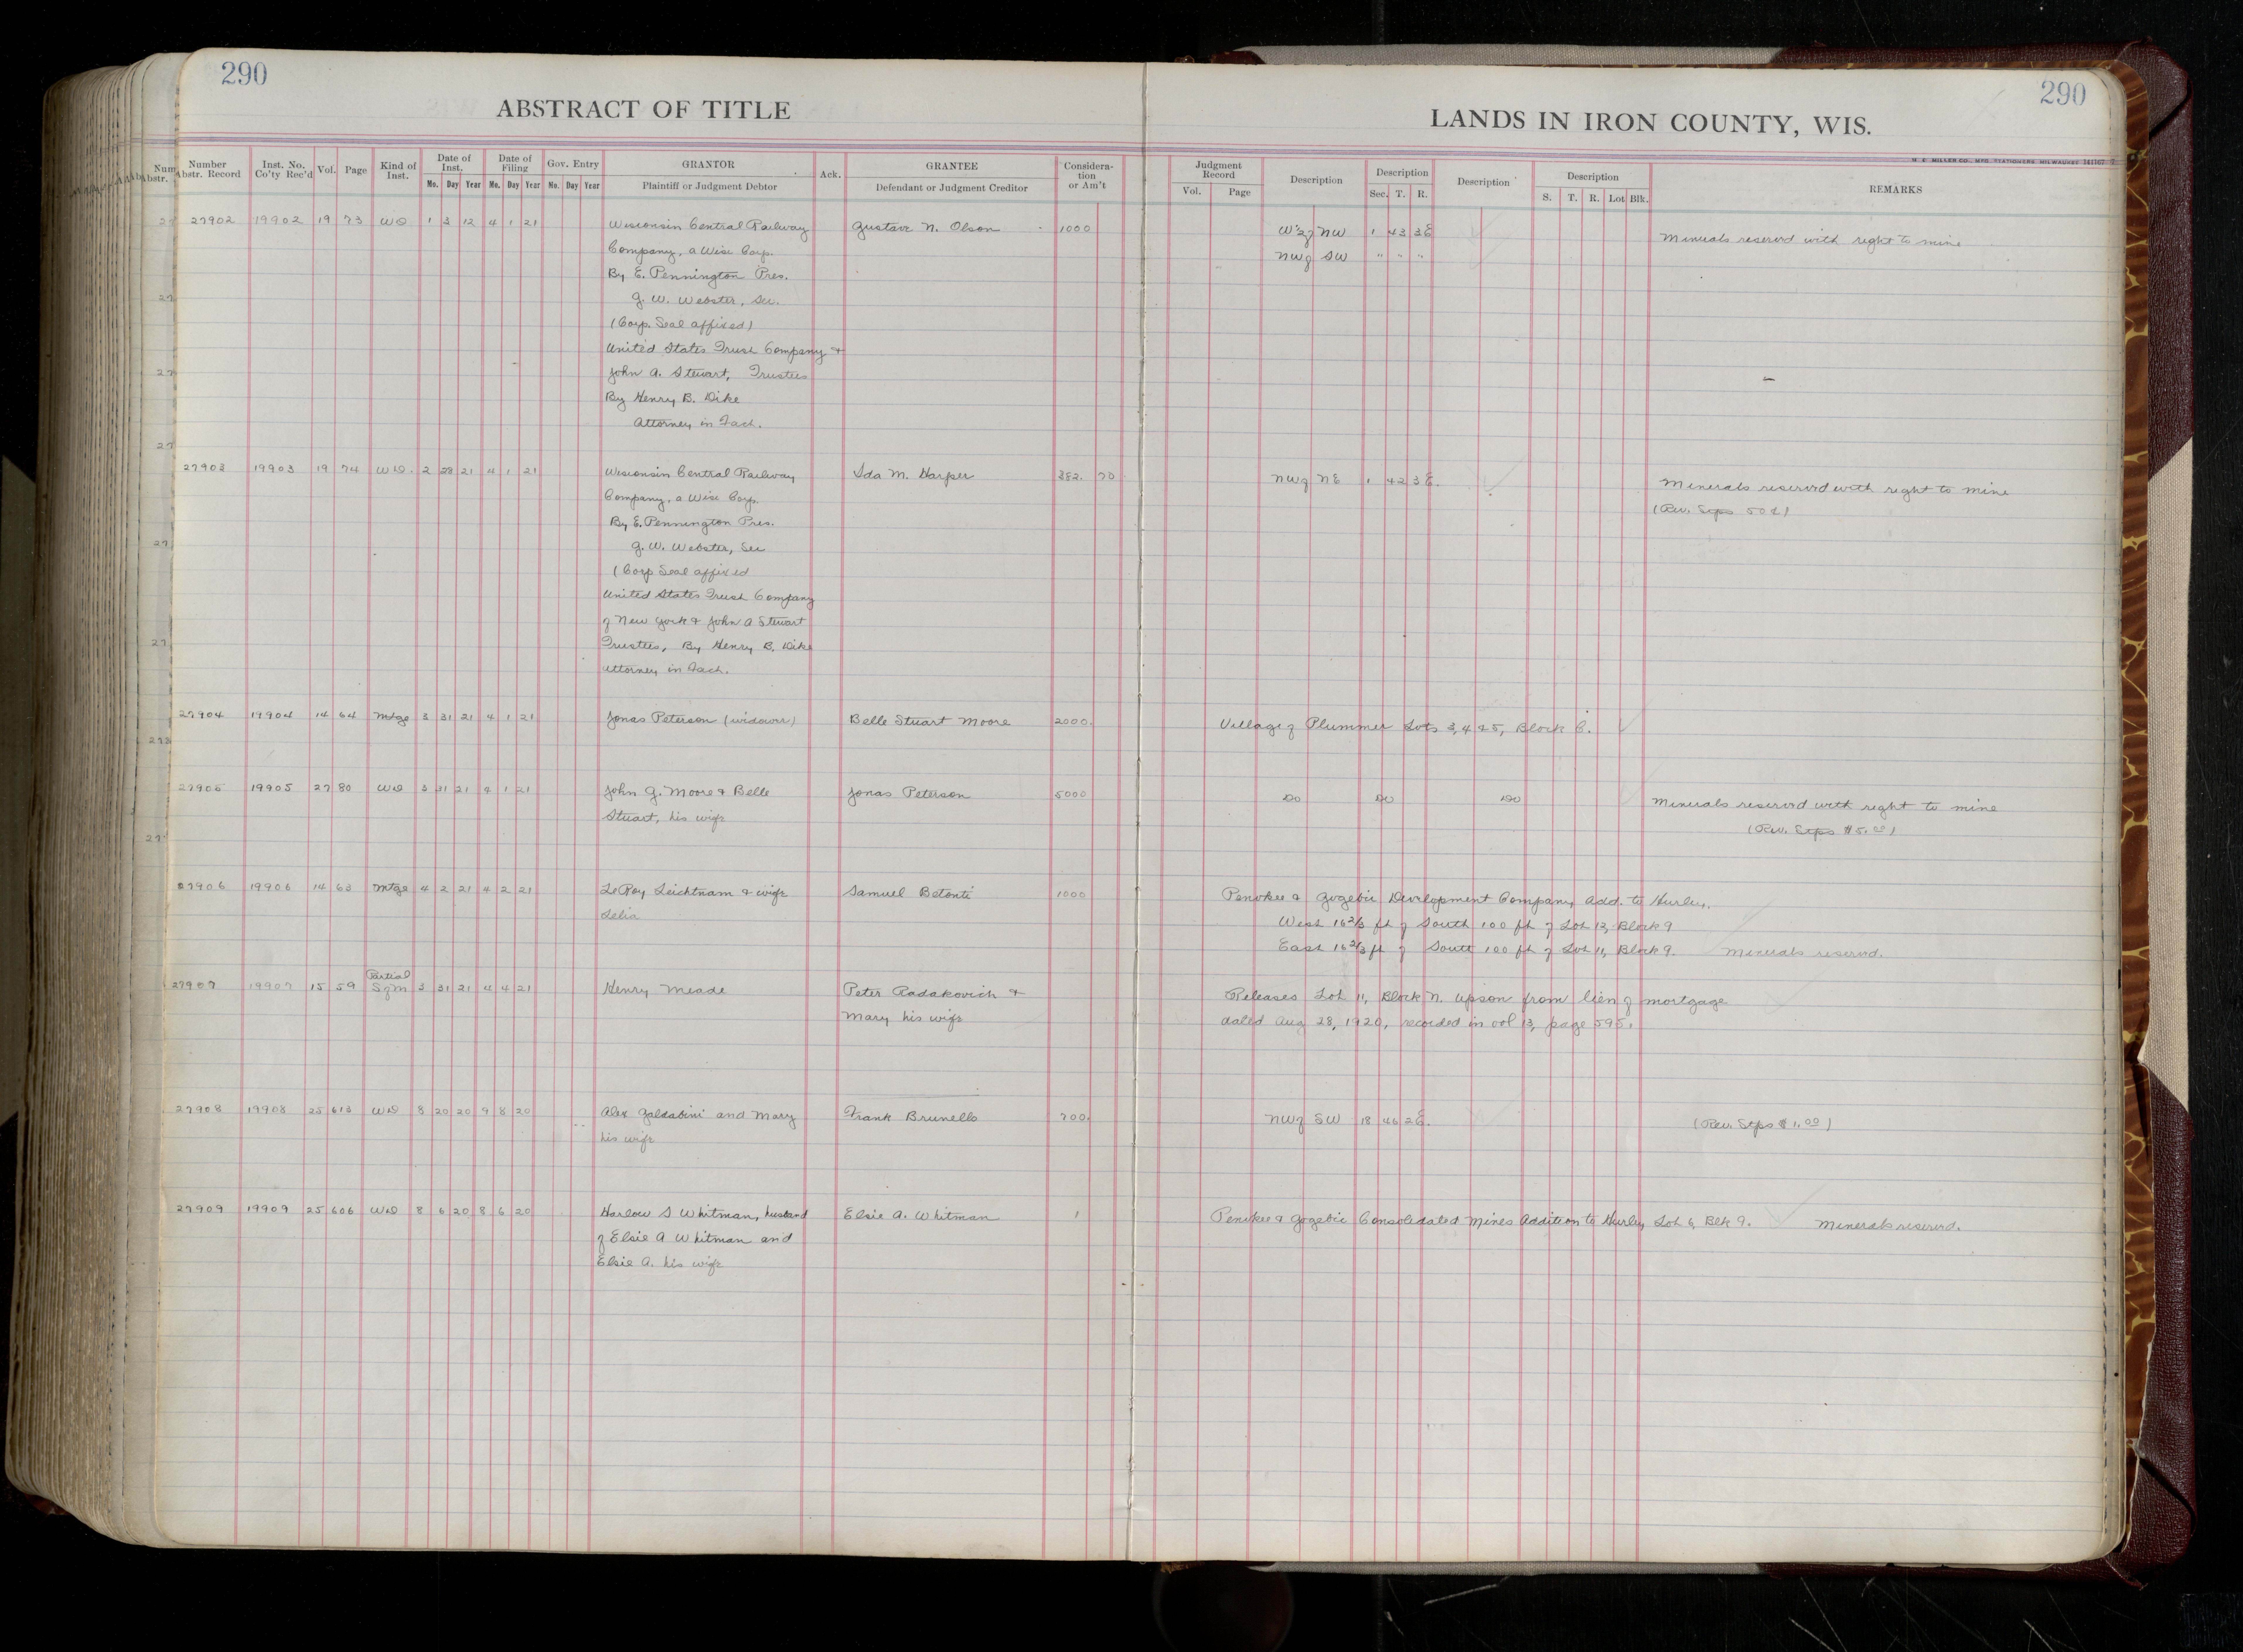 290
290
ABSTRACT OF TITLE
LANDS IN IRON COUNTY, WIS.
Number Abstr. Record Inst. No. Co'ty Rec'd Vol. Page Kind of Inst. Date of Inst. Date of Filing Gov. Entry GRANTOR Ack. GRANTEE Considera-tion or Am't Judgment Record Description Description Description Description REMARKS
Mo. Day Year Mo. Day Year Mo. Day Year Plaintiff or Judgment Debtor Defendant or Judgment Creditor Vol. Page Sec. T. R. S. T. R. Lot Blk.
27902 19902 19 73 WD 1 3 12 4 1 21 Wisconsin Central Railway Gustave N. Olson 1000 W½ of NW 1 43 3E Minerals reserved with right to mine
Company, a Wisc Corp. NW of SW " " "
By E. Pennington Pres.
G. W. Webster, Sec.
(Corp. Seal affixed)
United States Trust Company &
John A. Stewart, Trustees
By Henry B. Dike
Attorney in Fact.
27903 19903 19 74 WD. 2 28 21 4 1 21 Wisconsin Central Railway Ida M. Harper 382. 70 NW of NE 1 42 3E. Minerals reserved with right to mine
Company, a Wisc Corp. (Rev. Stps 50¢)
By E. Pennington Pres.
G. W. Webster, Sec
(Corp Seal affixed
United States Trust Company
of New York & John A Stewart
Trustees, By Henry B. Dike
Attorney in Fact.
27904 19904 14 64 Mtge 3 31 21 4 1 21 Jonas Peterson (widower) Belle Stuart Moore 2000. Village of Plummer Lots 3, 4 & 5, Block 6.
27905 19905 27 80 WD 3 31 21 4 1 21 John G. Moore & Belle Jonas Peterson 5000 Do Do Do Minerals reserved with right to mine
Stuart, his wife (Rev. Stps $5.00)
27906 19906 14 63 Mtge 4 2 21 4 2 21 LeRoy Leichtnam & wife Samuel Betonti 1000 Penokee & Gogebic Development Company Add. to Hurley.
Delia West 16 2/3 ft of South 100 ft of Lot 13, Block 9
East 16 2/3 ft of South 100 ft of Lot 11, Block 9. Minerals reserved.
27907 19907 15 59 Partial S of M 3 31 21 4 4 21 Henry Meade Peter Radakovich & Releases Lot 11, Block N. Upson from lien of mortgage
Mary his wife dated Aug 28, 1920, recorded in vol 13, page 595.
27908 19908 25 613 WD 8 20 20 9 8 20 Alex Galdabini and Mary Frank Brunello 700. NW of SW 18 46 2E. (Rev. Stps $1.00)
his wife
27909 19909 25 606 WD 8 6 20 8 6 20 Harlow S Whitman, husband Elsie A. Whitman 1 Penokee & Gogebic Consolidated Mines Addition to Hurley, Lot 6, Blk 9. Minerals reserved.
of Elsie A Whitman and
Elsie A. his wife